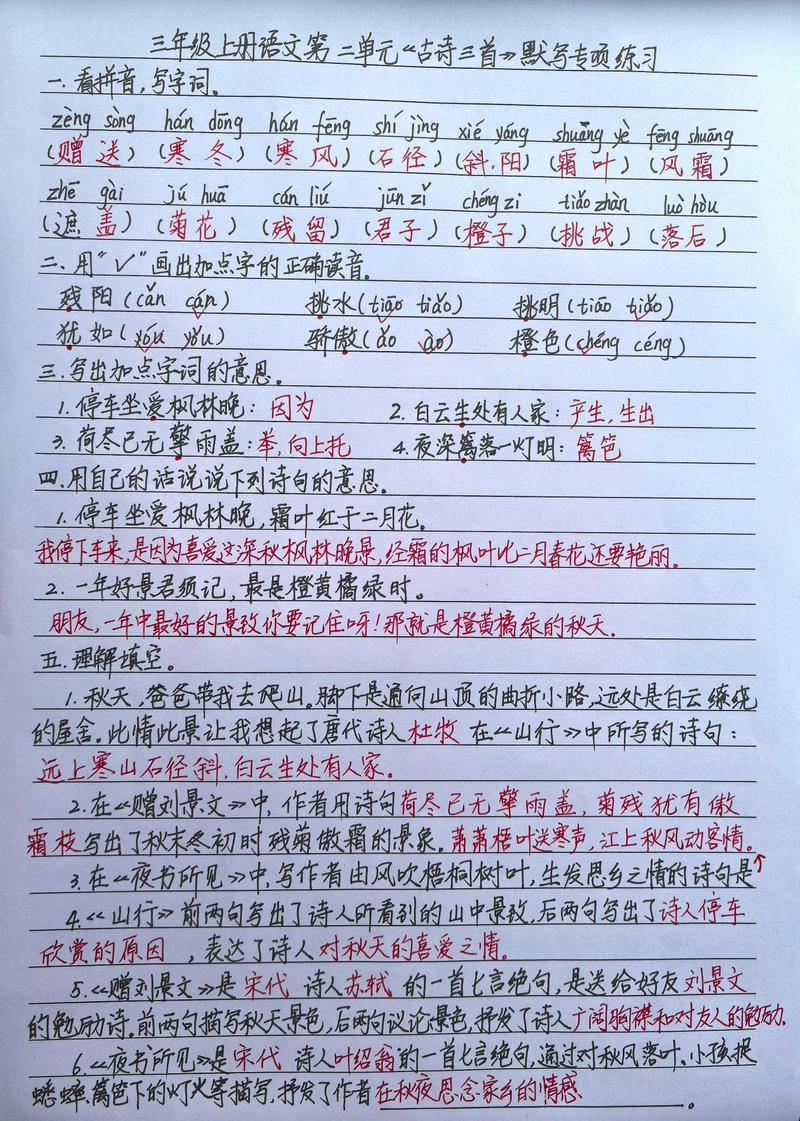 三年级上册语文第二单元《古诗三首》默写专项练习
一.看拼音,写字词。
zèng sòng hán dōng hán fēng shí jìng xié yáng shuāng yè fēng shuāng
(赠送) (寒冬) (寒风) (石径) (斜阳) (霜叶) (风霜)
zhē gài jú huā cán liú jūn zǐ chéng zi tiǎo zhàn luò hòu
(遮盖) (菊花) (残留) (君子) (橙子) (挑战) (落后)
二.用“√”画出加点字的正确读音。
残阳(cǎn cán) 挑水(tiāo tiǎo) 挑明(tiāo tiǎo)
犹如(yóu yǒu) 骄傲(ǎo ào) 橙色(chéng céng)
三.写出加点字词的意思。
1.停车坐爱枫林晚:因为 2.白云生处有人家:产生,生出
3.荷尽已无擎雨盖:举,向上托 4.夜深篱落一灯明:篱笆
四.用自己的话说说下列诗句的意思。
1.停车坐爱枫林晚,霜叶红于二月花。
我停下车来,是因为喜爱这深秋枫林晚景,经霜的枫叶比二月春花还要艳丽。
2.一年好景君须记,最是橙黄橘绿时。
朋友,一年中最好的景致你要记住呀!那就是橙黄橘绿的秋天。
五.理解填空。
1.秋天,爸爸带我去爬山。脚下是通向山顶的曲折小路,远处是白云缭绕
的屋舍。此情此景让我想起了唐代诗人杜牧在《山行》中所写的诗句:
远上寒山石径斜,白云生处有人家。
2.在《赠刘景文》中,作者用诗句荷尽已无擎雨盖,菊残犹有傲
霜枝写出了秋末冬初时残菊傲霜的景象。萧萧梧叶送寒声,江上秋风动客情。
3.在《夜书所见》中,写作者由风吹梧桐树叶,生发思乡之情的诗句是↑
4.《山行》前两句写出了诗人所看到的山中景致,后两句写出了诗人停车
欣赏的原因,表达了诗人对秋天的喜爱之情。
5.《赠刘景文》是宋代诗人苏轼的一首七言绝句,是送给好友刘景文
的勉励诗。前两句描写秋天景色,后两句议论景色,抒发了诗人广阔胸襟和对友人的勉励.
6.《夜书所见》是宋代诗人叶绍翁的一首七言绝句,通过对秋风落叶、小孩捉
蟋蟀、篱笆下的灯火等描写,抒发了作者在秋夜思念家乡的情感。